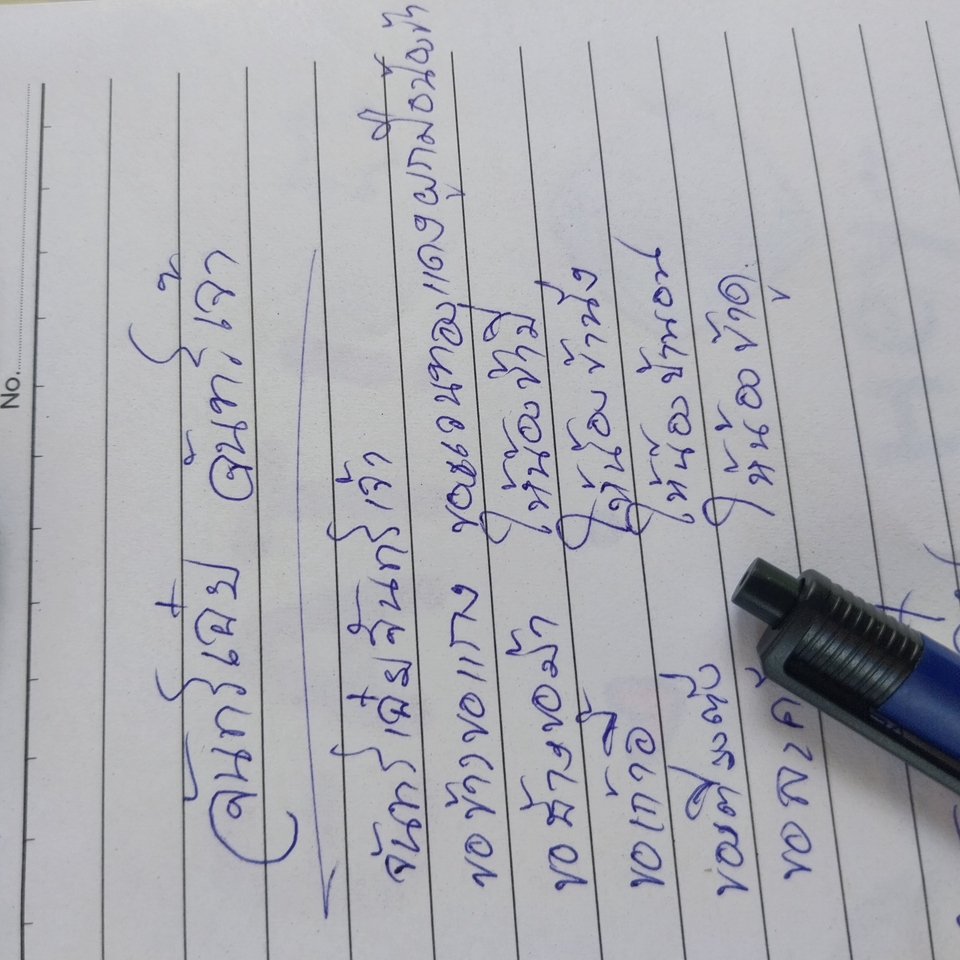 No.
จันทร์เอ๋ย จันทร์เจ้า
จันทร์เอ๋ยจันทร์เจ้า
ขอข้าวขอแกง ขอแหวนทองแดงผูกมือน้องข้า
ขอช้างขอม้า ให้น้องข้าขี่
ขอเก้าอี้ ให้น้องข้านั่ง
ขอเตียงตั่ง ให้น้องข้านอน
ขอละคร ให้น้องข้าดู